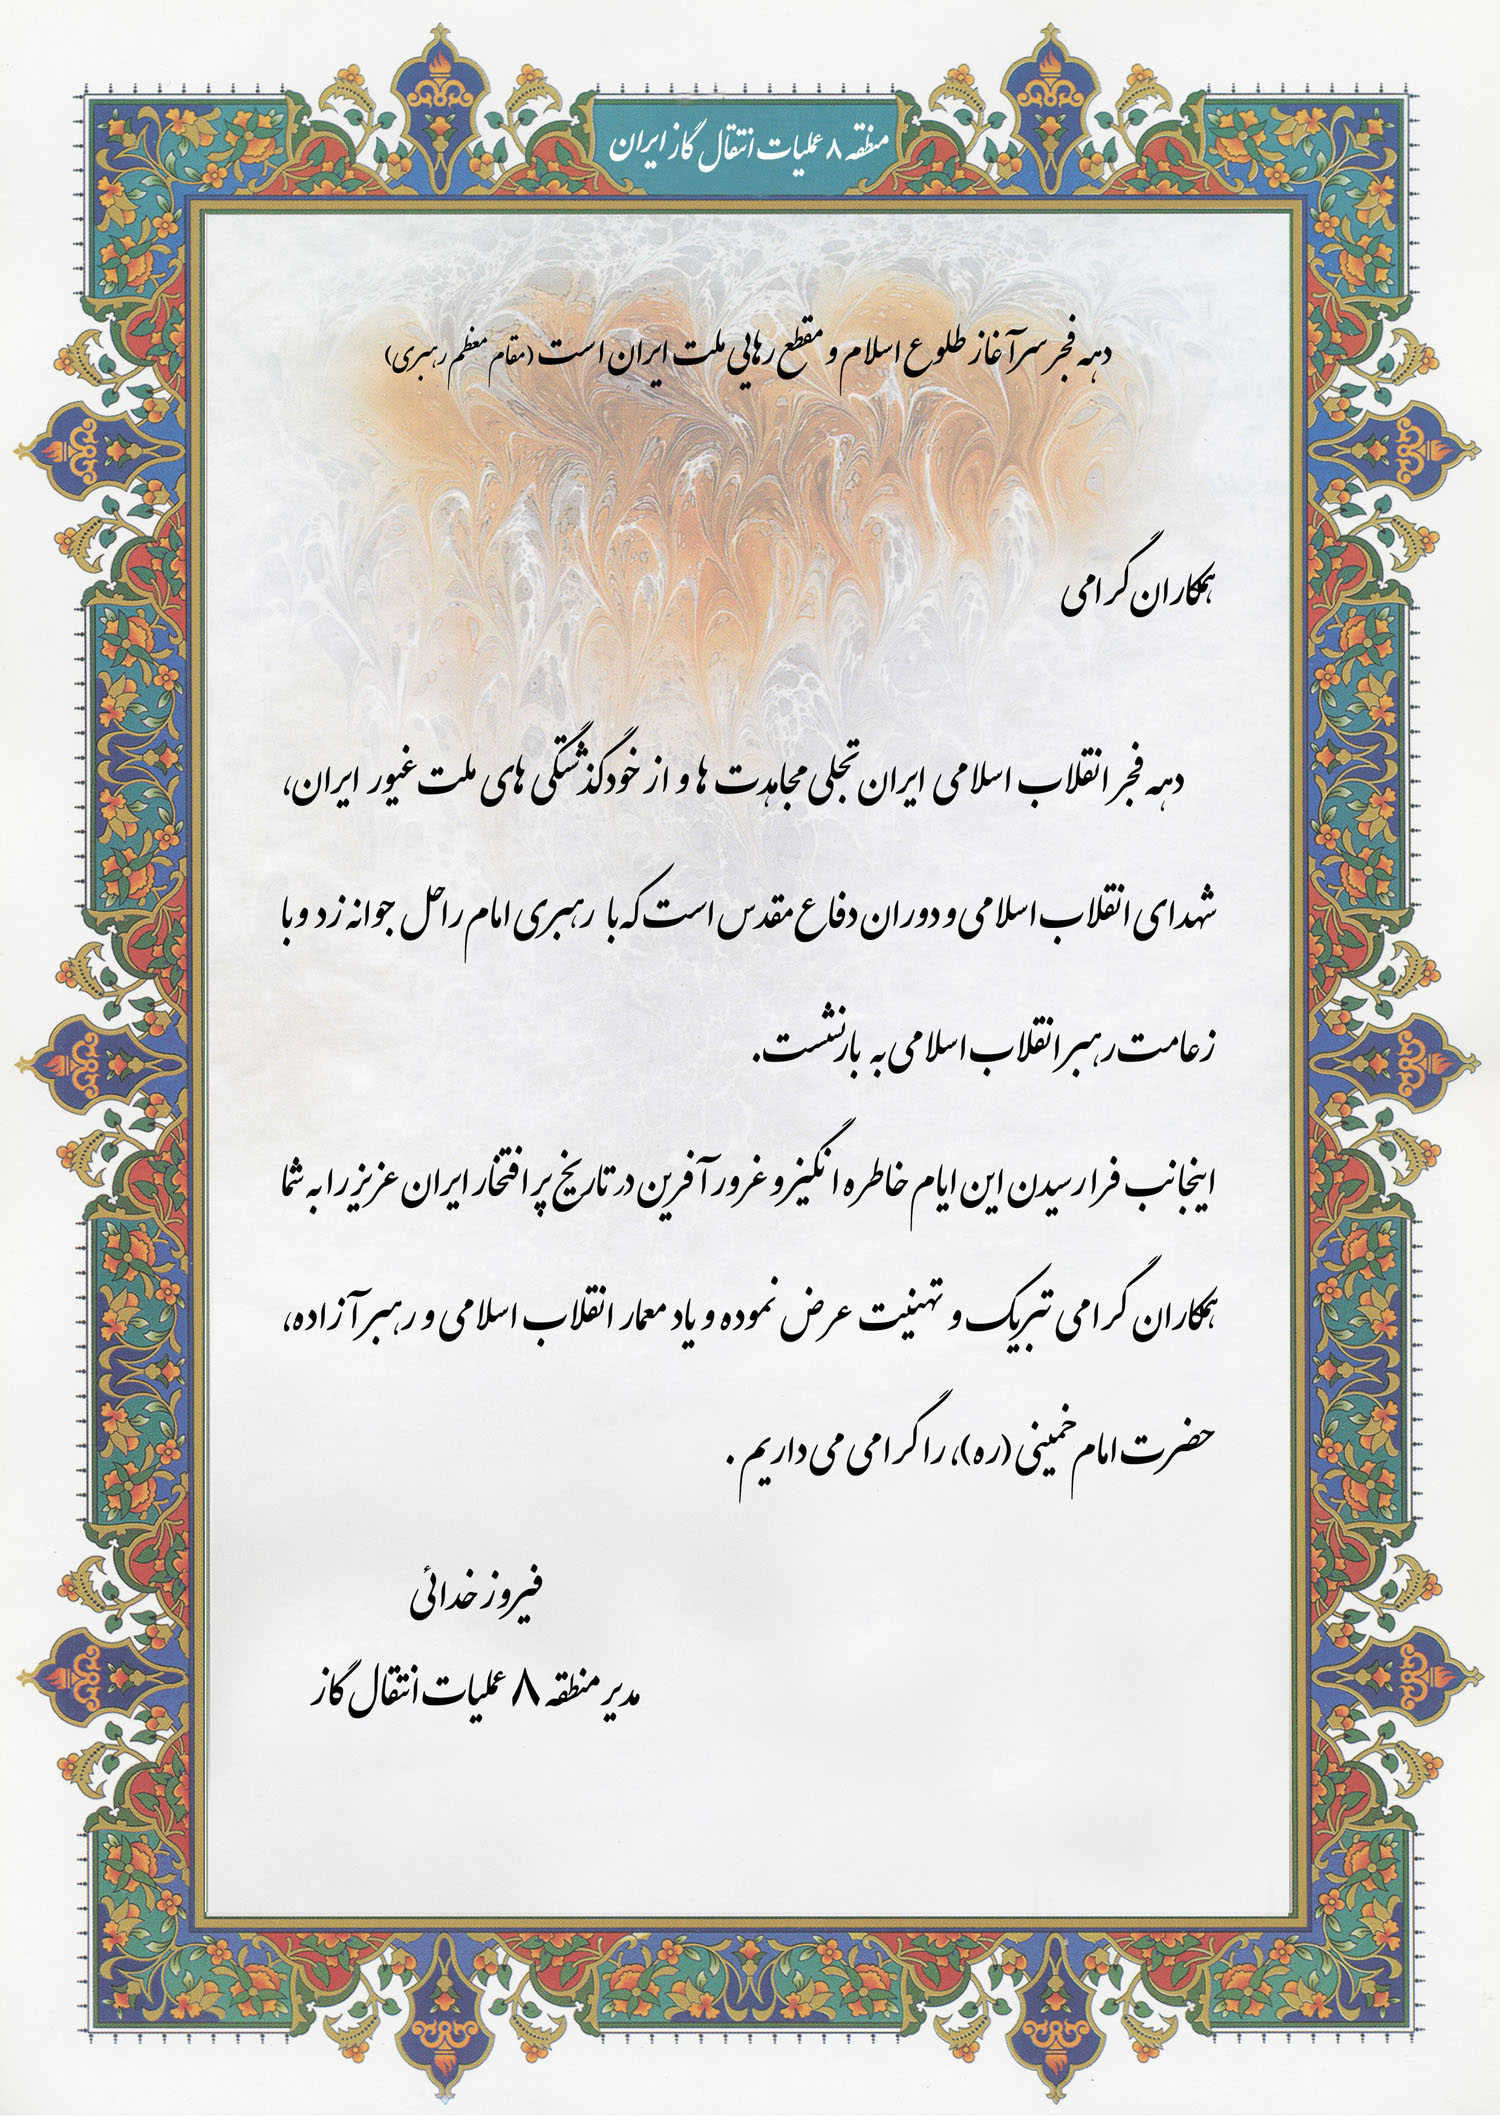 منطقه ۸ عملیات انتقال گاز ایران
دهه فجر سرآغاز طلوع اسلام و مقطع رهایی ملت ایران است (مقام معظم رهبری)
همکاران گرامی
دهه فجر انقلاب اسلامی ایران تجلی مجاهدت ها و از خودگذشتگی های ملت غیور ایران،
شهدای انقلاب اسلامی و دوران دفاع مقدس است که با رهبری امام راحل جوانه زد و با
زعامت رهبر انقلاب اسلامی به بار نشست.
اینجانب فرا رسیدن این ایام خاطره انگیز و غرور آفرین در تاریخ پر افتخار ایران عزیز را به شما
همکاران گرامی تبریک و تهنیت عرض نموده و یاد معمار انقلاب اسلامی و رهبر آزاده،
حضرت امام خمینی (ره)، را گرامی می داریم .
فیروز خدائی
مدیر منطقه ۸ عملیات انتقال گاز